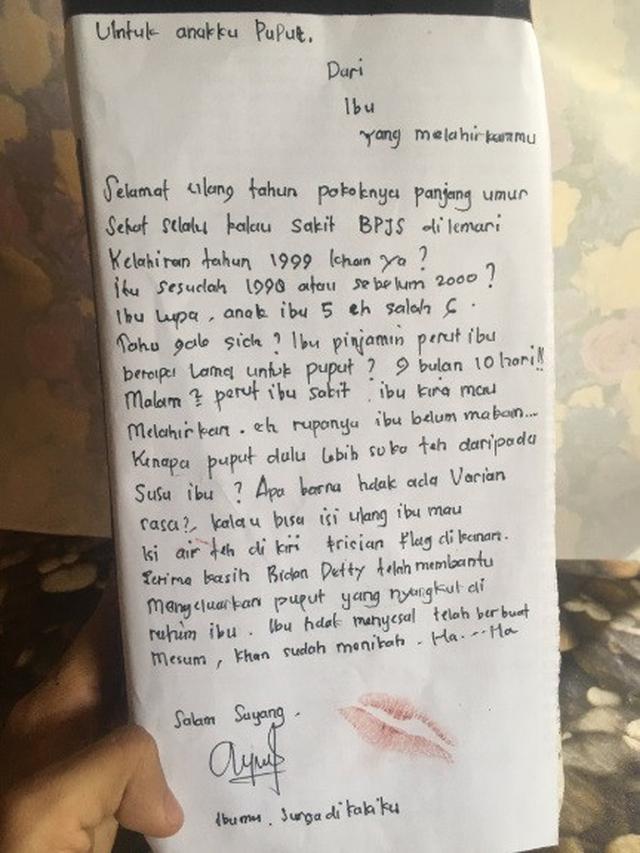 Untuk anakku Puput.
Dari
Ibu
yang melahirkanmu
Selamat ulang tahun pokoknya panjang umur
Sehat selalu kalau sakit BPJS dilemari
Kelahiran tahun 1999 khan ya?
itu sesudah 1990 atau sebelum 2000?
Ibu Lupa, anak ibu 5 eh salah 6.
Tahu gak sich? Ibu pinjamin perut ibu
berapa Lama untuk puput? 9 bulan 10 hari!!
Malam 2 perut ibu sakit ibu kira mau
Melahirkan. eh rupanya ibu belum makan...
Kenapa puput dulu lebih suka teh daripada
Susu ibu? Apa karna tidak ada Varian
rasa?, kalau bisa isi ulang ibu mau
Isi air teh di kiri frisian flag di kanan.
Terima kasih Bidan Detty telah membantu
Mengeluarkan puput yang nyangkut di
rahim ibu. Ibu tidak menyesal telah berbuat
Mesum, khan sudah menikah. Ha...Ha
Salam Sayang.
Ibumu. Surga di kakiku